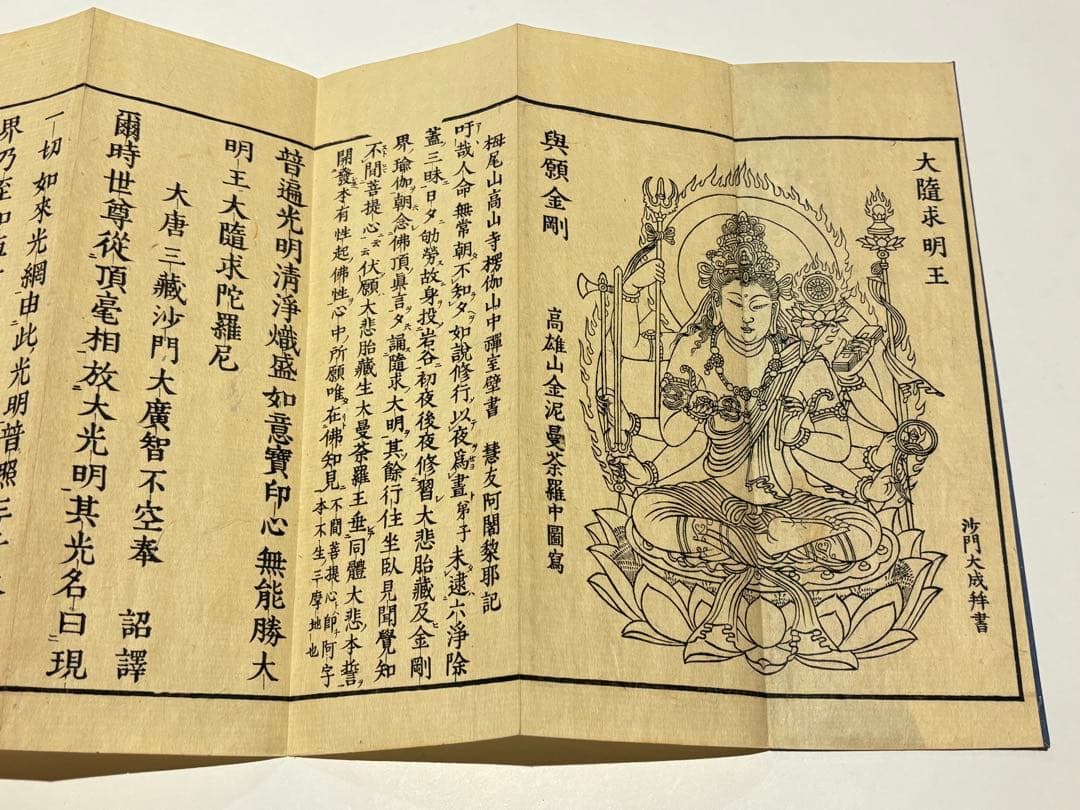 大隨求明王
沙門大成拜書
與願金剛
高雄山金泥曼荼羅中圖寫
栂尾山高山寺楞伽山中禪室壁書 慧友阿闍黎耶記
吁哉人命無常朝不知夕如說修行以夜爲晝弟子未逮六淨除
蓋三昧日夕劬勞故身投岩谷初夜後夜修習大悲胎藏及金剛
界瑜伽朝念佛頂眞言夕誦隨求大明其餘行住坐臥見聞覺知
不間菩提心云云伏願大悲胎藏生大曼荼羅王垂同體大悲本誓
開發本有性起佛性心中所願唯在佛知見不間菩提心卽阿字本不生三摩地也
普遍光明清淨熾盛如意寶印心無能勝大
明王大隨求陀羅尼
大唐三藏沙門大廣智不空奉 詔譯
爾時世尊從頂毫相放大光明其光名曰現
一切如來光網由此光明普照三千
界乃至如